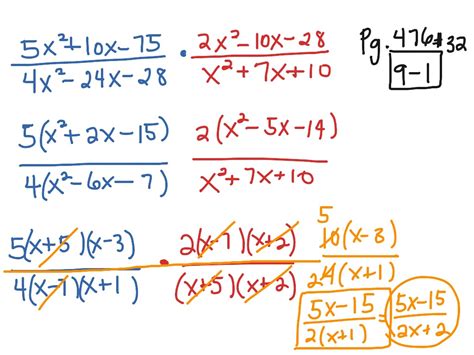 (5x²+10x-75)/(4x²-24x-28) · (2x²-10x-28)/(x²+7x+10)
Pg. 476 #32
9-1
5(x²+2x-15)/4(x²-6x-7) 2(x²-5x-14)/x²+7x+10
5(x+5)(x-3)/4(x-7)(x+1) · 2(x-7)(x+2)/(x+5)(x+2)
5
10(x-3)/2 4(x+1)
(5x-15)/2(x+1) = (5x-15)/(2x+2)